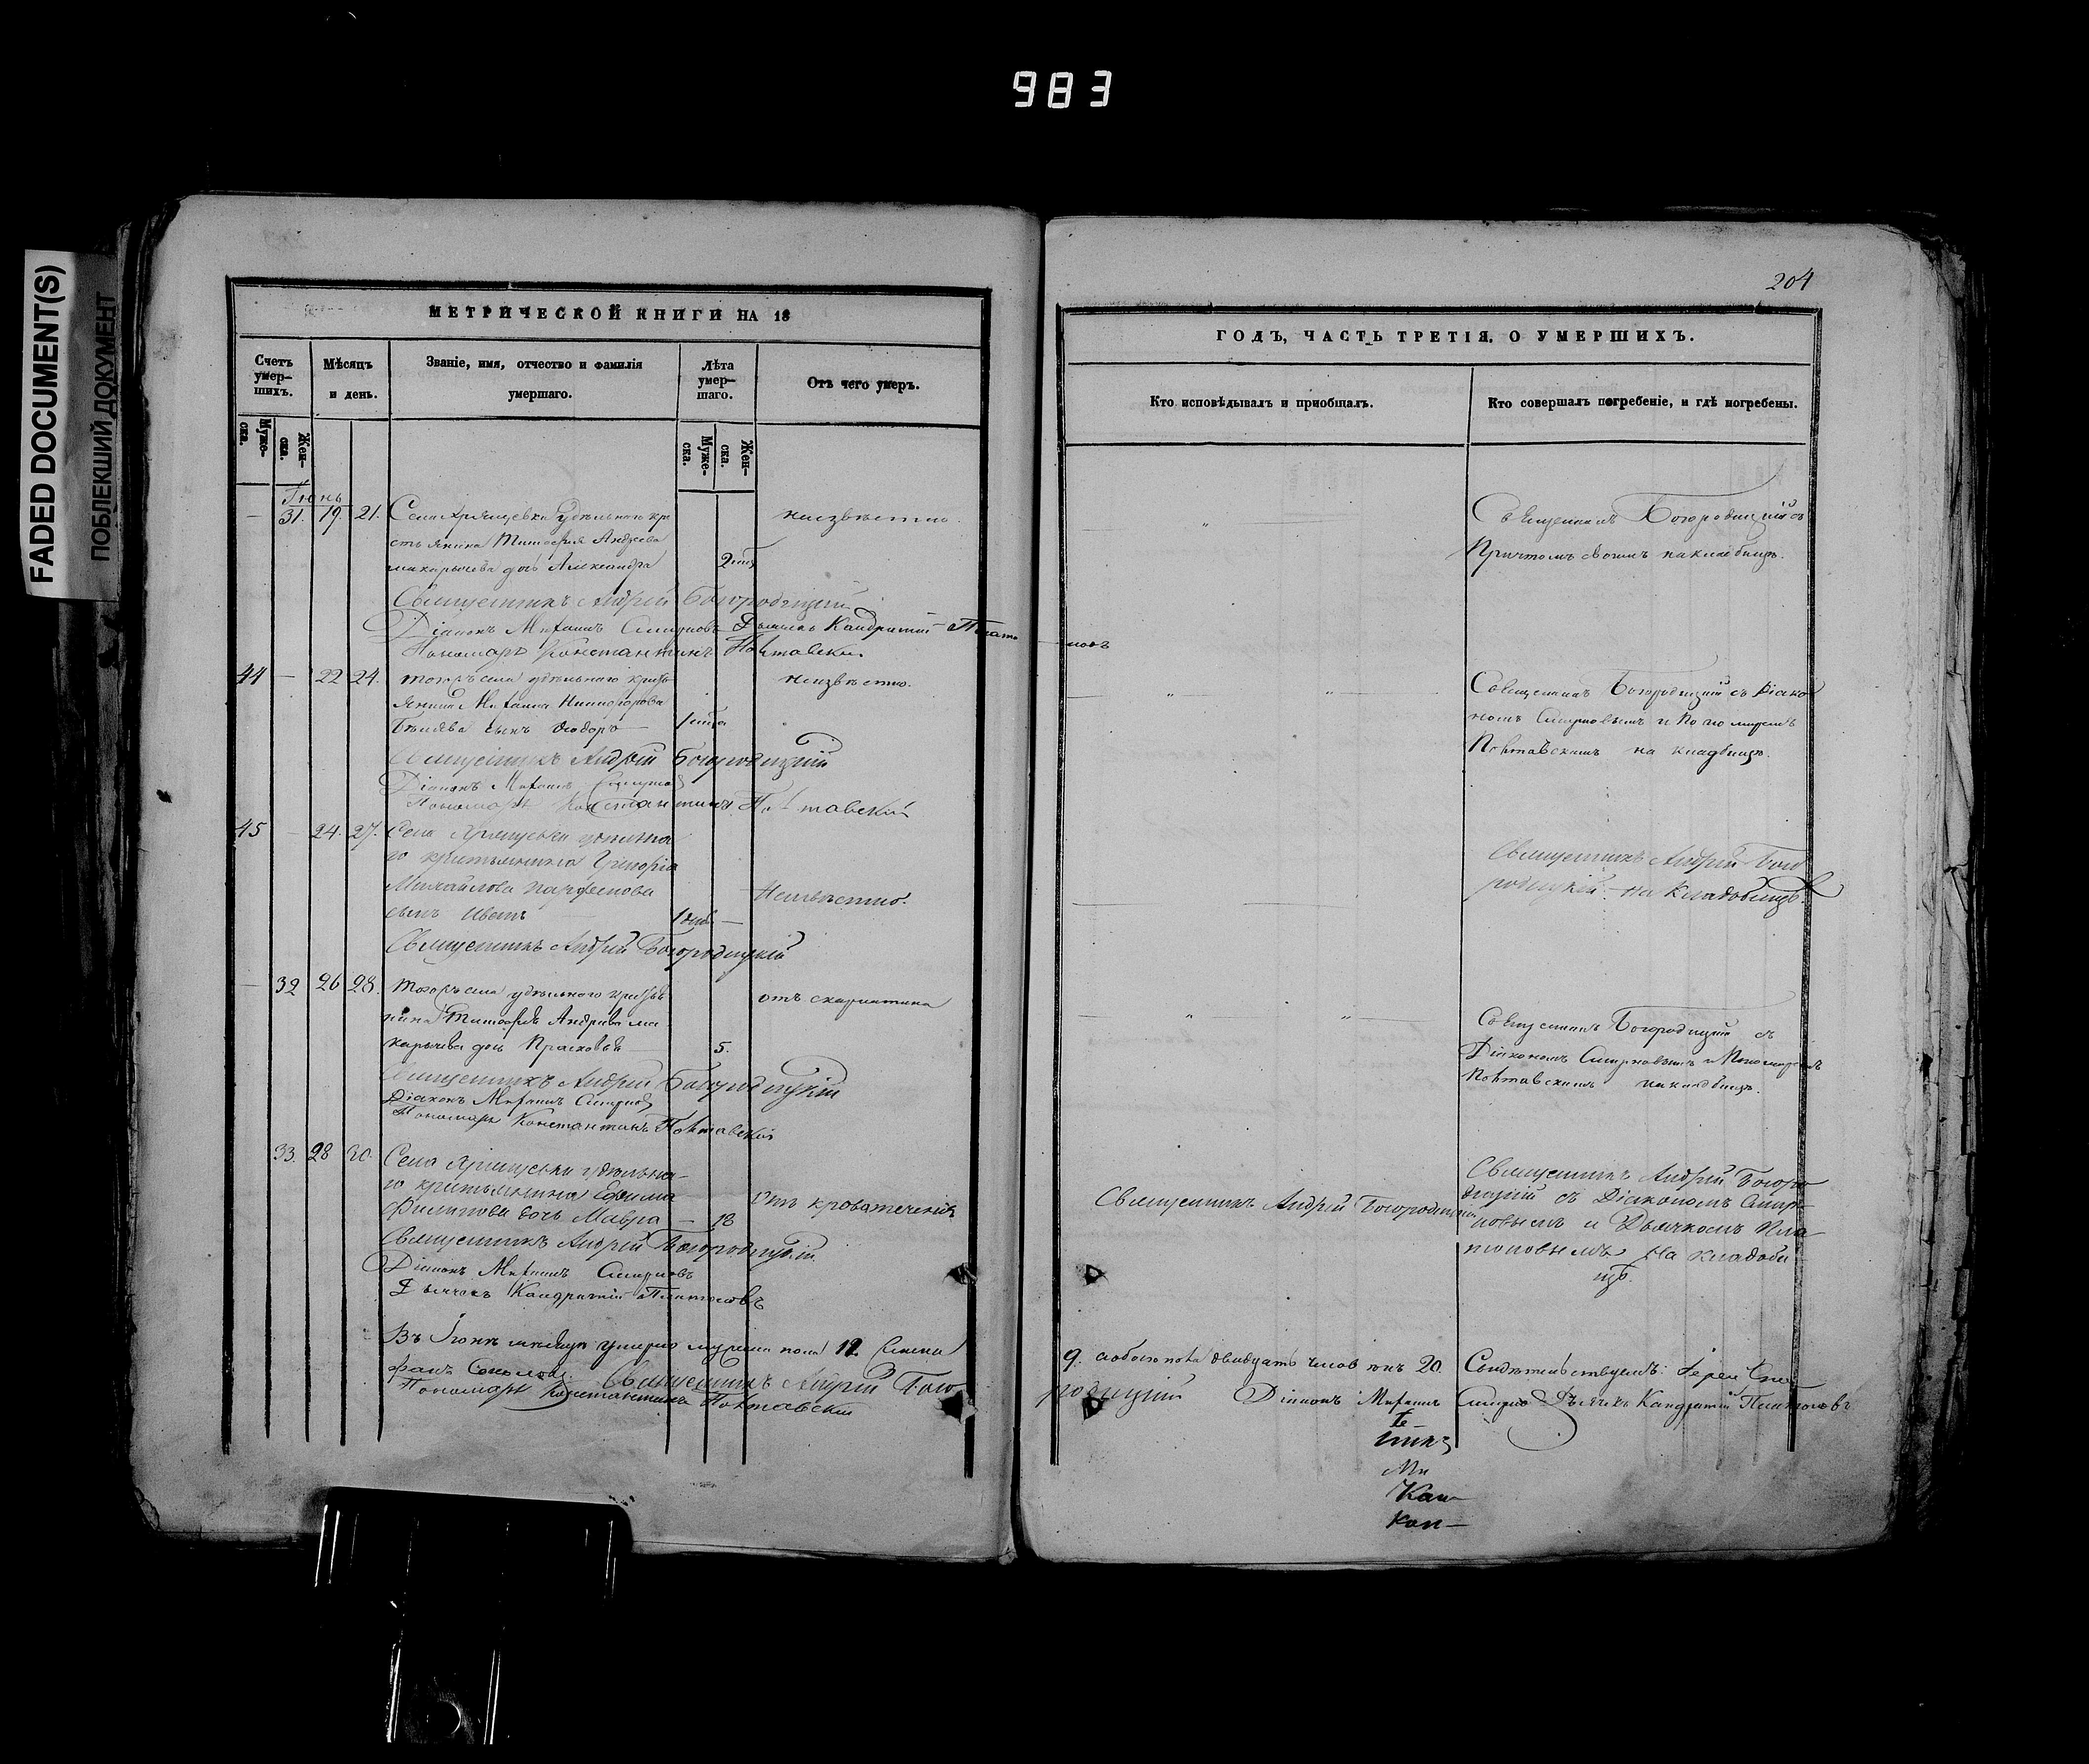 983
FADED DOCUMENT(S)
ПОБЛЕКШИЙ ДОКУМЕНТ
МЕТРИЧЕСКОЙ КНИГИ НА 18
Счетъ умер-шихъ.
Мѣсяцъ и день.
Званіе, имя, отчество и фамилія умершаго.
Лѣта умер-шаго.
Отъ чего умеръ.
Муже-ска.
Жен-ска.
Муже-ска.
Жен-ска.
Іюнь
31. 19. 21. Села Хрящевки удѣльнаго кре
неизвѣстно.
стьянина Тимофея Андреева
макарычева дочь Александра
2
Священникъ Андрей Богородицкій
Діаконъ Михаилъ Смирновъ Дьячекъ Кандратій Плато
новъ
Пономарь Константинъ Полтавскій
44 — 22 24. тогожъ села удѣльнаго кресть
неизвѣстно.
янина Михаила Никифорова
Бѣляева сынъ Ѳеодоръ
1
Священникъ Андрей Богородицкій
Діаконъ Михаилъ Смирновъ
Пономарь Константинъ Полтавскій
45 — 24. 27. Села Хрящевки удѣльна
го крестьянина Григорія
Михайлова Парфенова
Неизвѣстно.
сынъ Иванъ
1
Священникъ Андрей Богородицкій
— 32 26 28. тогожъ села удѣльнаго крестья
отъ скарлатина
нина Тимофея Андреева ма
карычева дочь Прасковья
5.
Священникъ Андрей Богородицкій
Діаконъ Михаилъ Смирновъ
Пономарь Константинъ Полтавскій
33. 28 30. Села Хрящевки удѣльна-
го крестьянина Ефима
Отъ кровотеченія
Филипова дочь Мавра — 18
Священникъ Андрей Богородицкій.
Діаконъ Михаилъ Смирновъ
Дьячекъ Кандратій Платоновъ
Въ Іюнѣ мѣсяцѣ умерло мужеска пола
Соколовъ. Священникъ Андрей Бого
Пономарь Константинъ Полтавскій
204
ГОДЪ, ЧАСТЬ ТРЕТІЯ, О УМЕРШИХЪ.
Кто исповѣдывалъ и пріобщалъ.
Кто совершалъ погребеніе, и гдѣ погребены.
Священникъ Богородицкій съ
Причтомъ своимъ на кладбищѣ.
Священникъ Богородицкій съ Діако
номъ Смирновымъ и Пономаремъ
Полтавскимъ на кладбищѣ.
Священникъ Андрей Бого
родицкій. На Кладбищѣ.
Священникъ Богородицкій съ
Діакономъ Смирновымъ и Пономаремъ
Полтавскимъ на кладбищѣ.
Священникъ Андрей Богородицкій
Священникъ Андрей Богоро
дицкій съ Діакономъ Смир-
новымъ и Дьячкомъ Пла-
тоновымъ На кладби
щѣ.
9. обоего пола двадцать 20. Свидѣтельствуемъ: Іерей
родицкій Діаконъ Михаилъ Смирновъ Дьячекъ Кандратій Платоновъ
Ми
Кан—
Кон—